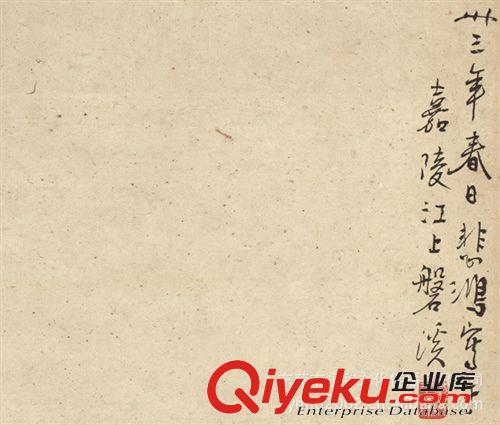 卅三年春日悲鴻寫
嘉陵江上磐溪
Qiyeku.com 企业库
Enterprise Database